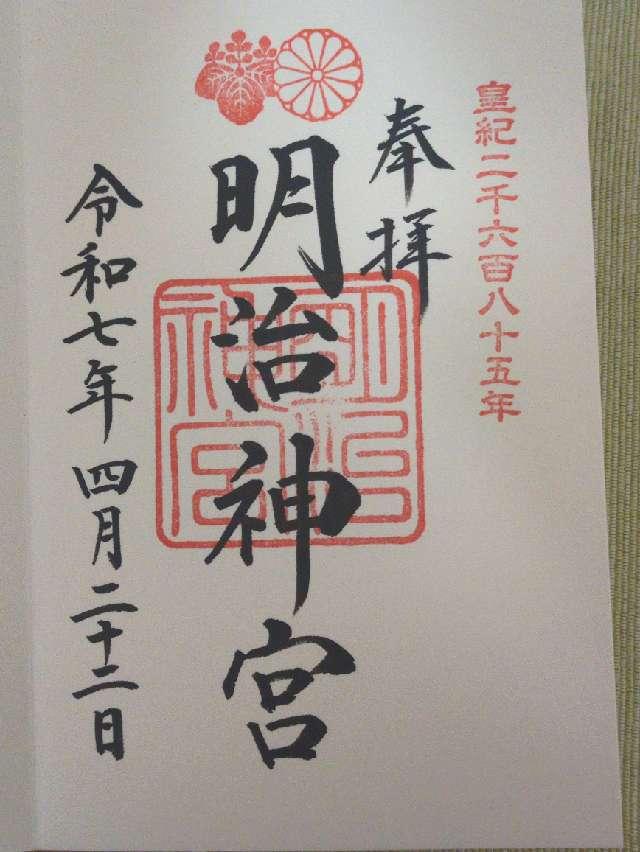 皇紀二千六百八十五年
奉拝
明治神宮
明治神宮
令和七年四月二十二日